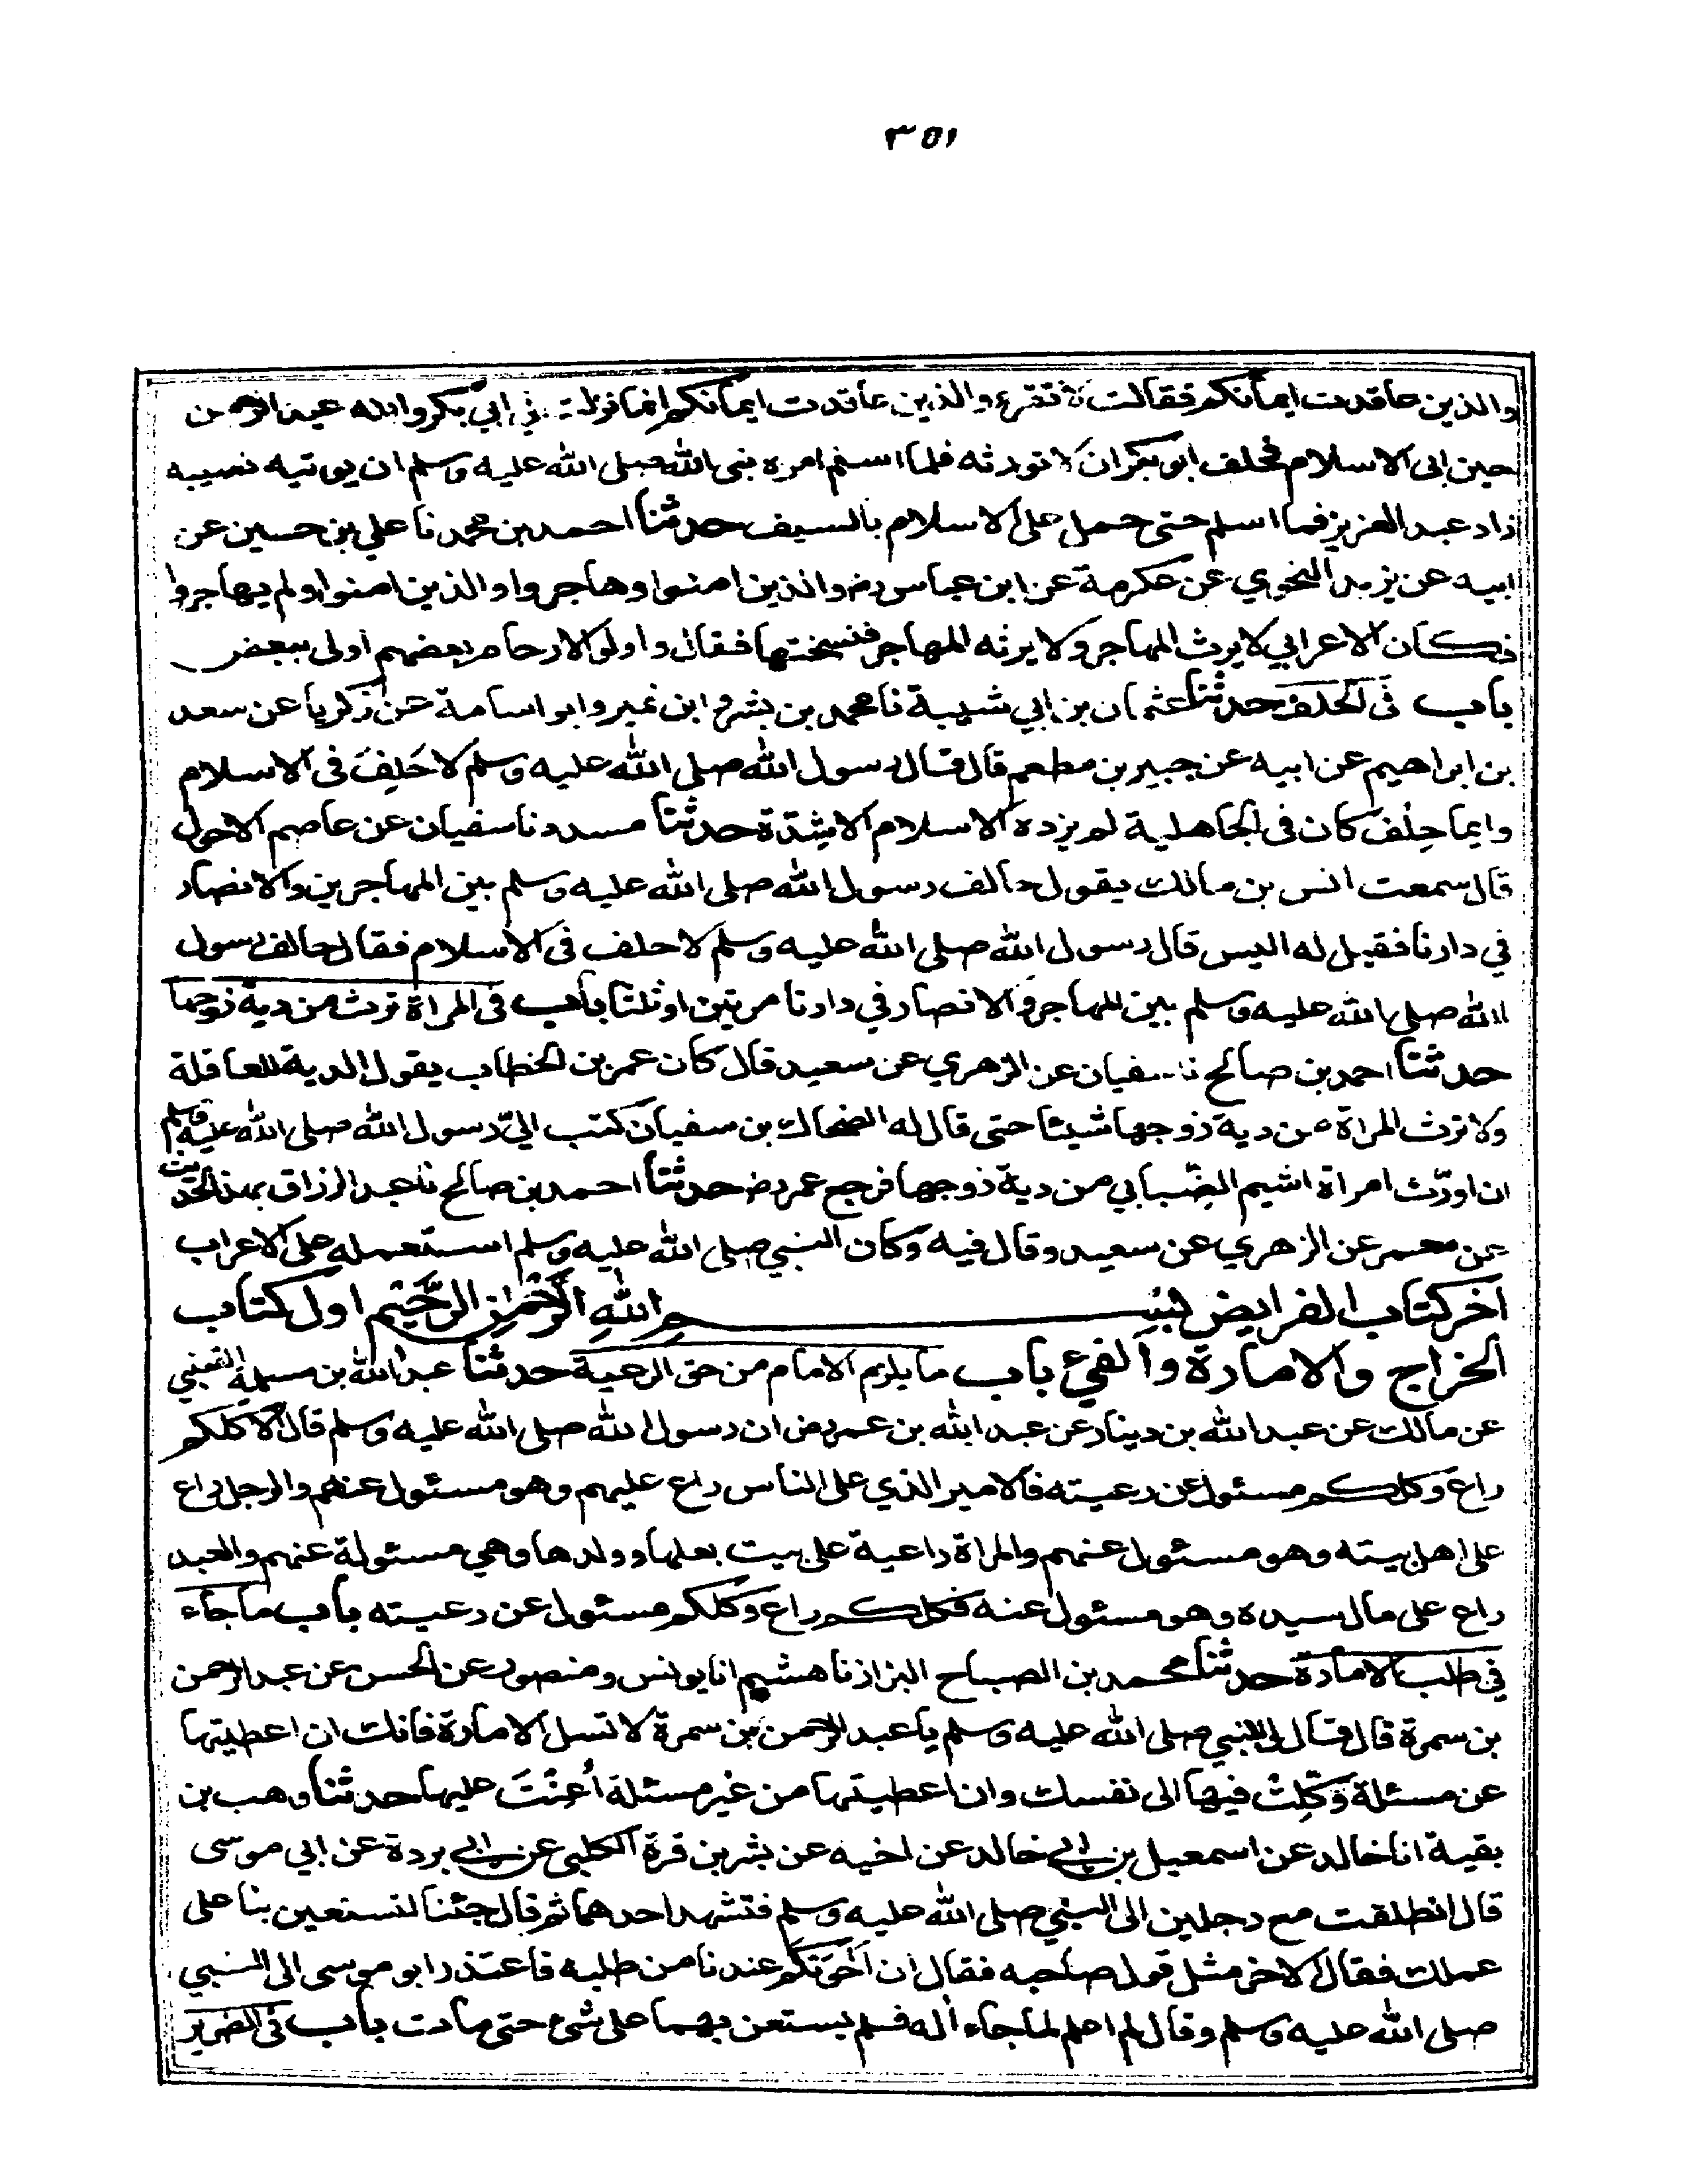 ٣٥١
والذين عاقدت ايمانكم فقالت لا تقرء والذين عاقدت ايمانكم انما نزلت في ابي بكر وابنه عبد الرحمن
حين ابى الاسلام فحلف ابو بكر ان لا تورثه فلما اسلم امره نبي الله صلى الله عليه وسلم ان يوتيه نصيبه
زاد عبد العزيز فما اسلم حتى حمل على الاسلام بالسيف حدثنا احمد بن محمد نا علي بن حسين عن
ابيه عن يزيد النخوي عن عكرمة عن ابن عباس رض والذين امنوا وهاجروا والذين امنوا ولم يهاجروا
فكان الاعرابي لا يرث المهاجر ولا يرثه المهاجر فنسختها فقال واولو الارحام بعضهم اولى ببعض
باب في الحلف حدثنا عثمان بن ابي شيبة نا محمد بن بشر و ابن نمير وابو اسامة عن زكريا عن سعد
بن ابراهيم عن ابيه عن جبير بن مطعم قال قال رسول الله صلى الله عليه وسلم لا حَلِفَ في الاسلام
وايما حِلفٍ كان في الجاهلية لم يزده الاسلام الا شِدّة حدثنا مسدد نا سفيان عن عاصم الاحول
قال سمعت انس بن مالك يقول حالف رسول الله صلى الله عليه وسلم بين المهاجرين والانصار
في دارنا فقيل له اليس قال رسول الله صلى الله عليه وسلم لا حلف في الاسلام فقال حالف رسول
الله صلى الله عليه وسلم بين المهاجر و الانصار في دارنا مرتين اوثلثا باب في المراة ترث من دية زوجها
حدثنا احمد بن صالح نا سفيان عن الزهري عن سعيد قال كان عمر بن الخطاب يقول الدية للعاقلة
ولا ترث المراة من دية زوجها شيئا حتى قال له الضحاك بن سفيان كتب اليّ رسول الله صلى الله عليه وسلم
ان اورّث امراة اشيم الضِّبابي من دية زوجها فرجع عمر رض حدثنا احمد بن صالح نا عبد الرزاق بهذا الحديث
عن معمر عن الزهري عن سعيد وقال فيه وكان النبي صلى الله عليه وسلم استعمله على الاعراب
اخر كتاب الفرايض بسم الله الرحمن الرحيم اول كتاب
الخراج والامارة والفئ باب ما يلزم الامام من حق الرعية حدثنا عبد الله بن مسلمة القعنبي
عن مالك عن عبد الله بن دينار عن عبد الله بن عمر رض ان رسول الله صلى الله عليه وسلم قال الا كلكم
راع وكلكم مسئول عن رعيته فالامير الذي على الناس راع عليهم وهو مسئول عنهم والرجل راع
على اهل بيته وهو مسئول عنهم والمراة راعية على بيت بعلها وولدها وهي مسئولة عنهم والعبد
راع على مال سيده وهو مسئول عنه فكلكم راع وكلكم مسئول عن رعيته باب ما جاء
في طلب الامارة حدثنا محمد بن الصباح البزاز نا هشيم انا يونس ومنصور عن الحسن عن عبد الرحمن
بن سمرة قال قال لي النبي صلى الله عليه وسلم يا عبد الرحمن بن سمرة لا تسل الامارة فانك ان اعطيتها
عن مسئلة وَكِّلتَ فيها الى نفسك وان اعطيتها من غير مسئلة اُعِنْتَ عليها حدثنا وهب بن
بقية انا خالد عن اسمعيل بن ابي خالد عن اخيه عن بشر بن قرة الكلبي عن ابي بردة عن ابي موسى
قال انطلقت مع رجلين الى النبي صلى الله عليه وسلم فتشهد احدهما ثم قال جئنا لتستعين بنا على
عملك فقال الاخر مثل قول صاحبه فقال ان اَخْوَنَكم عندنا من طلبه فاعتذر ابو موسى الى النبي
صلى الله عليه وسلم وقال لم اعلم لما جاءا له فلم يستعن بهما على شئ حتى مات باب في الضرير